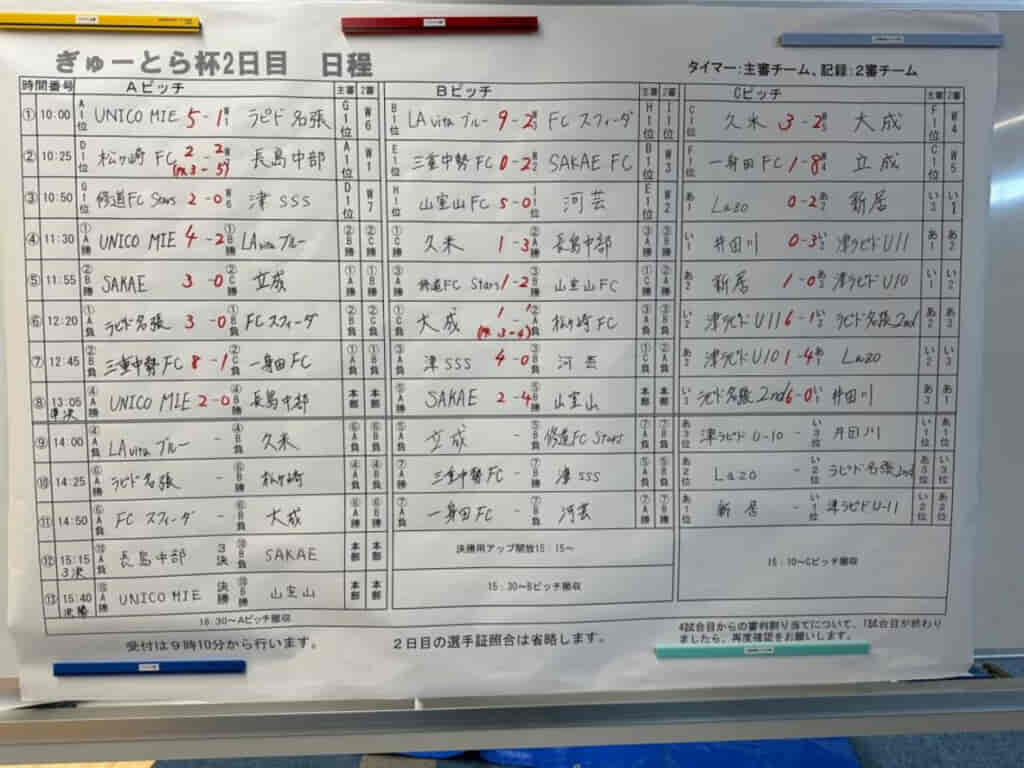 ぎゅーとら杯2日目 日程
タイマー:主審チーム、記録:2審チーム
時間番号 Aピッチ 主審 2審 Bピッチ 主審 2審 Cピッチ 主審 2審
① 10:00 A1位 UNICO MIE 5-1 ラピド名張 G1位 W6 B1位 LA vita ブルー 9-2 FC スフィーダ H1位 I1位 C1位 久米 3-2 大成 F1位 W4
② 10:25 D1位 松ヶ崎FC 2-2 (PK 3-5) 長島中部 A1位 W1 E1位 三重中勢FC 0-2 SAKAE FC B1位 W3 F1位 一身田FC 1-8 立成 C1位 W5
③ 10:50 G1位 修道FC Stars 2-0 津SSS D1位 W7 H1位 山室山FC 5-0 河芸 E1位 W2 あ1 Lazo 0-2 新居 い3 い1
④ 11:30 ①A勝 UNICO MIE 4-2 ①B勝 LAvita ブルー ②B勝 ②C勝 ①C勝 久米 1-3 ②A勝 長島中部 ③A勝 ③B勝 い1 井田川 0-3 津ラピドU11 あ1 あ2
⑤ 11:55 ②B勝 SAKAE 3-0 ②C勝 立成 ①A勝 ①B勝 ③A勝 修道FC Stars 1-2 ③B勝 山室山FC ①C勝 ②A勝 あ2 新居 1-0 津ラピドU10 い1 い2
⑥ 12:20 ①A負 ラピド名張 3-0 ①B負 FCスフィーダ ②B負 ②C負 ①C負 大成 1-1 (PK 3-4) ②A負 松ヶ崎FC ③A負 ③B負 い2 津ラピドU11 6-1 ラピド名張2nd あ2 あ3
⑦ 12:45 ②B負 三重中勢FC 8-1 ②C負 一身田FC ①A負 ①B負 ③A負 津SSS 4-0 ③B負 河芸 ①C負 ②A負 あ2 津ラピドU10 1-4 Lazo い2 い3
⑧ 13:05 準決 ④A勝 UNICO MIE 2-0 ④B勝 長島中部 本部 本部 ⑤A勝 SAKAE 2-4 ⑤B勝 山室山 本部 本部 い1 ラピド名張2nd 6-0 井田川 あ3 あ1
⑨ 14:00 ④A負 LAvita ブルー - ④B負 久米 ⑥A勝 ⑥B勝 ⑤A負 立成 - ⑤B負 修道FC Stars ⑦A勝 ⑦B勝 あ3位 津ラピドU-10 - い3位 井田川 い1位 あ1位
⑩ 14:25 ⑥A勝 ラピド名張 - ⑥B勝 松ヶ崎 ④A負 ④B負 ⑦A勝 三重中勢FC - ⑦B勝 津SSS ⑤A負 ⑤B負 あ2位 Lazo - い2位 ラピド名張2nd あ3位 い3位
⑪ 14:50 ⑥A負 FCスフィーダ - ⑥B負 大成 ⑥A勝 ⑥B勝 ⑦A負 一身田FC - ⑦B負 河芸 ⑦A勝 ⑦B勝 あ1位 新居 - い1位 津ラピドU-11 い2位 あ2位
⑫ 15:15 3決 長島中部 3決 SAKAE 本部 本部 決勝用アップ開放15:15~
⑬ 15:40 決勝 UNICO MIE 決勝 山室山 本部 本部 15:30~Bピッチ撤収 15:10~Cピッチ撤収
16:30~Aピッチ撤収
受付は9時10分から行います。 2日目の選手証照合は省略します。
4試合目からの審判割り当てについて、1試合目が終わり
ましたら、再度確認をお願いします。